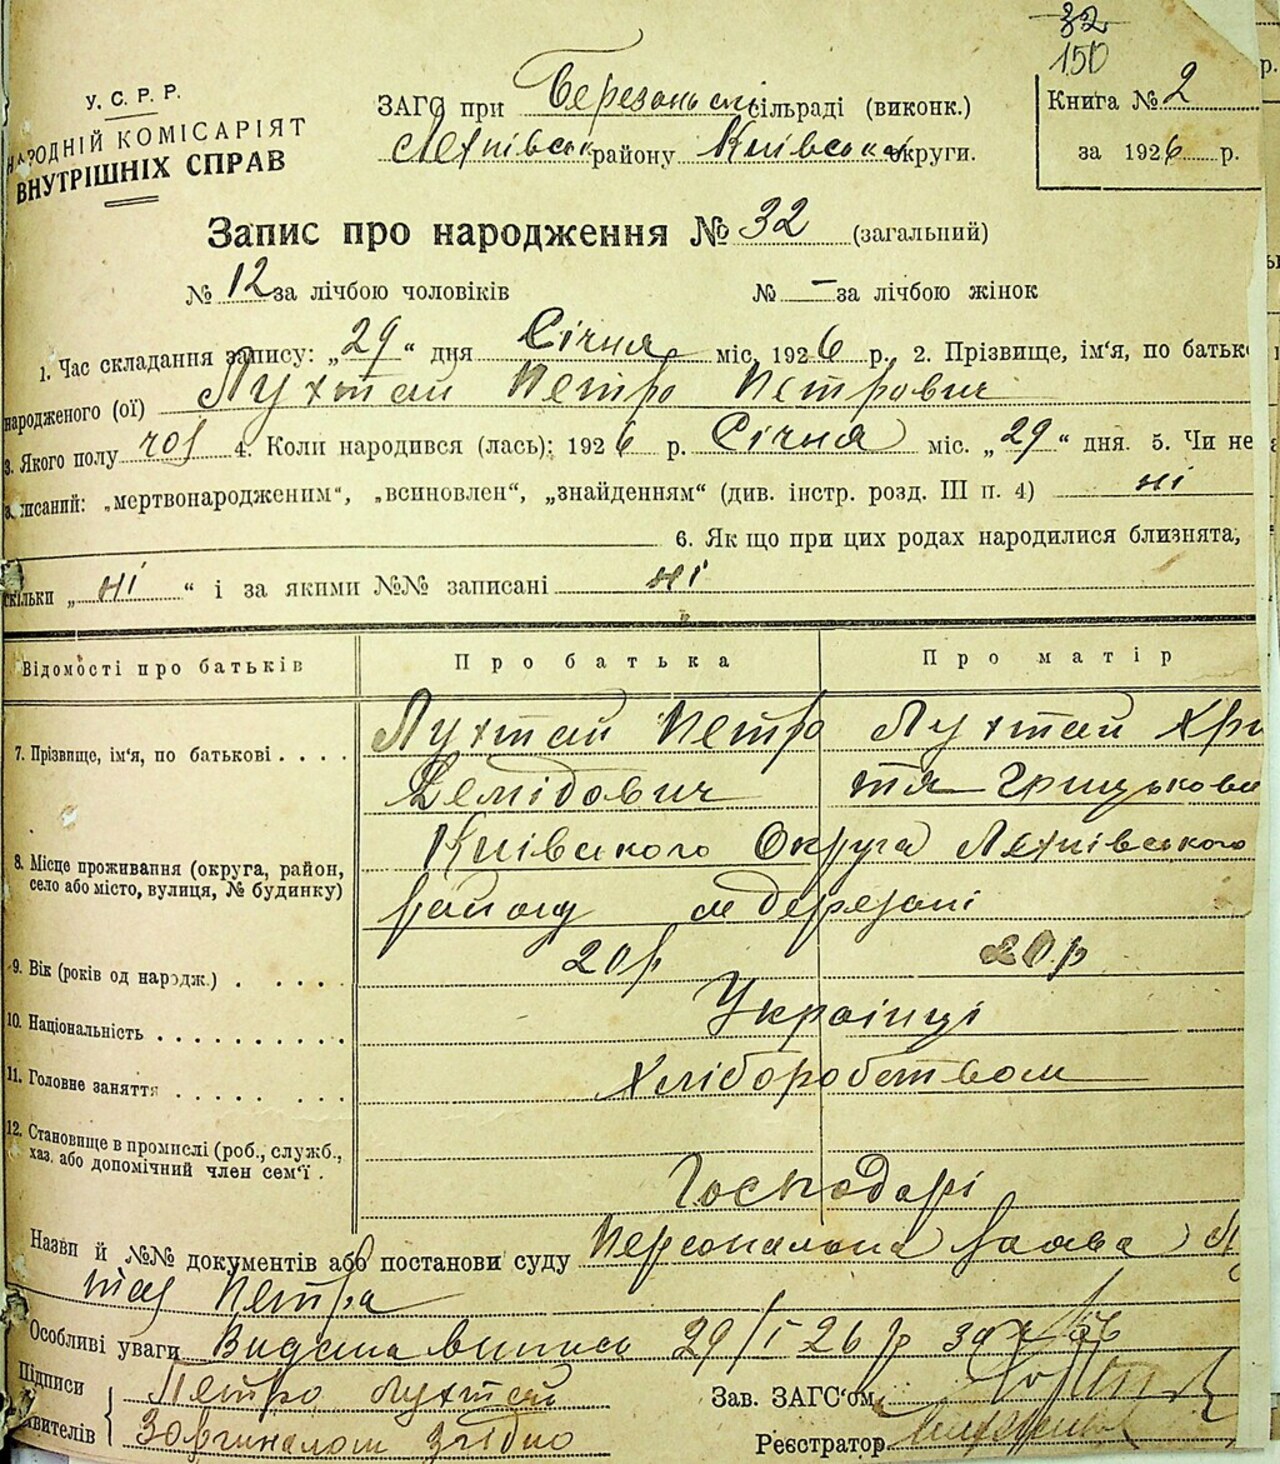 32
150
У. С. Р. Р.
НАРОДНІЙ КОМІСАРІЯТ
ВНУТРІШНІХ СПРАВ
ЗАГС при Березаньскій сільраді (виконк.)
Яехнівськ району Київської округи.
Книга № 2
за 1926 р.
Запис про народження № 32 (загальний)
№ 12 за лічбою чоловіків № — за лічбою жінок
1. Час складання запису: „29“ дня Січня міс. 1926 р. 2. Прізвище, ім'я, по батьк
народженого (ої) Лухтай Петро Петрович
3. Якого полу чол 4. Коли народився (лась): 1926 р. Січня міс. „29“ дня. 5. Чи не
записаний: „мертвонародженим“, „всиновлен“, „знайденням“ (див. інстр. розд. III п. 4) ні
6. Як що при цих родах народилися близнята,
скільки „ні“ і за якими №№ записані ні
Відомості про батьків Про батька Про матір
7. Прізвище, ім'я, по батькові . . . . Лухтай Петро Лухтай Хри
Демідович тя Грицькова
8. Місце проживання (округа, район, село або місто, вулиця, № будинку) Київського Округа Яехнівського
району м Березані
9. Вік (років од народж.) . . . . . 20 р 20 р
10. Національність . . . . . . . . . . Українці
11. Головне заняття . . . . . . . . Хліборобством
12. Становище в промислі (роб., служб.,
хаз. або допомічний член сем'ї . Господарі
Назви й №№ документів або постанови суду Персональна заява Л
тай Петра
Особливі уваги Видана випись 29/I 26 р
Підписи Петро Лухтай Зав. ЗАГС'ом
явителів З оргиналом згідно Реєстратор